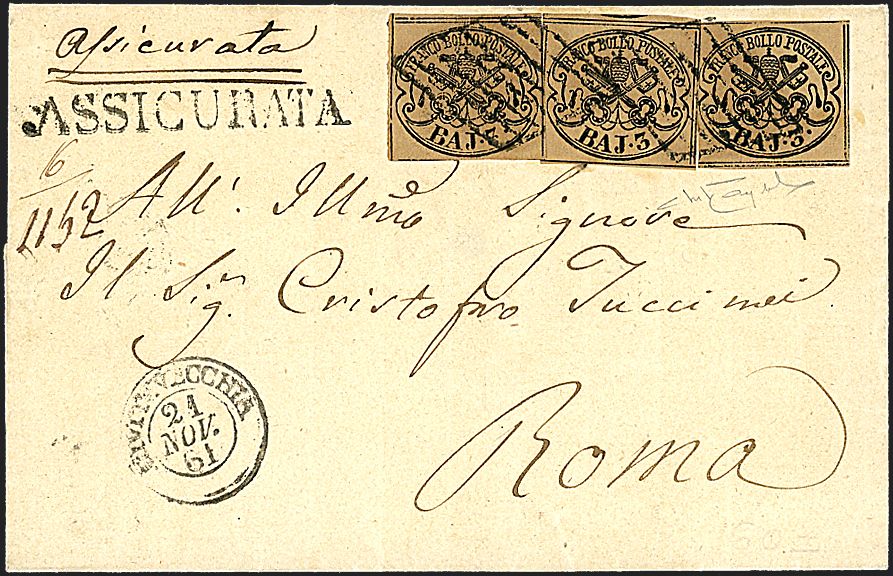 Assicurata
ASSICURATA
FRANCO BOLLO POSTALE
BAJ. 3.
FRANCO BOLLO POSTALE
BAJ. 3.
FRANCO BOLLO POSTALE
BAJ. 3.
6
1152
All'. Illmo Signore
Il Sigr. Cristofro Tuccimei.
CIVITAVECCHIA
21
NOV.
61
Roma